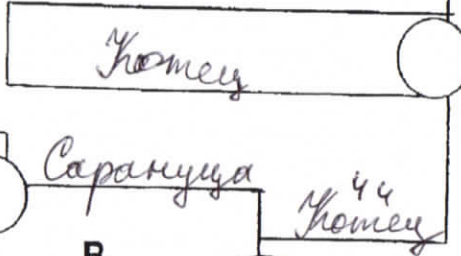 Котец
Сарануца
чч
Котец
В